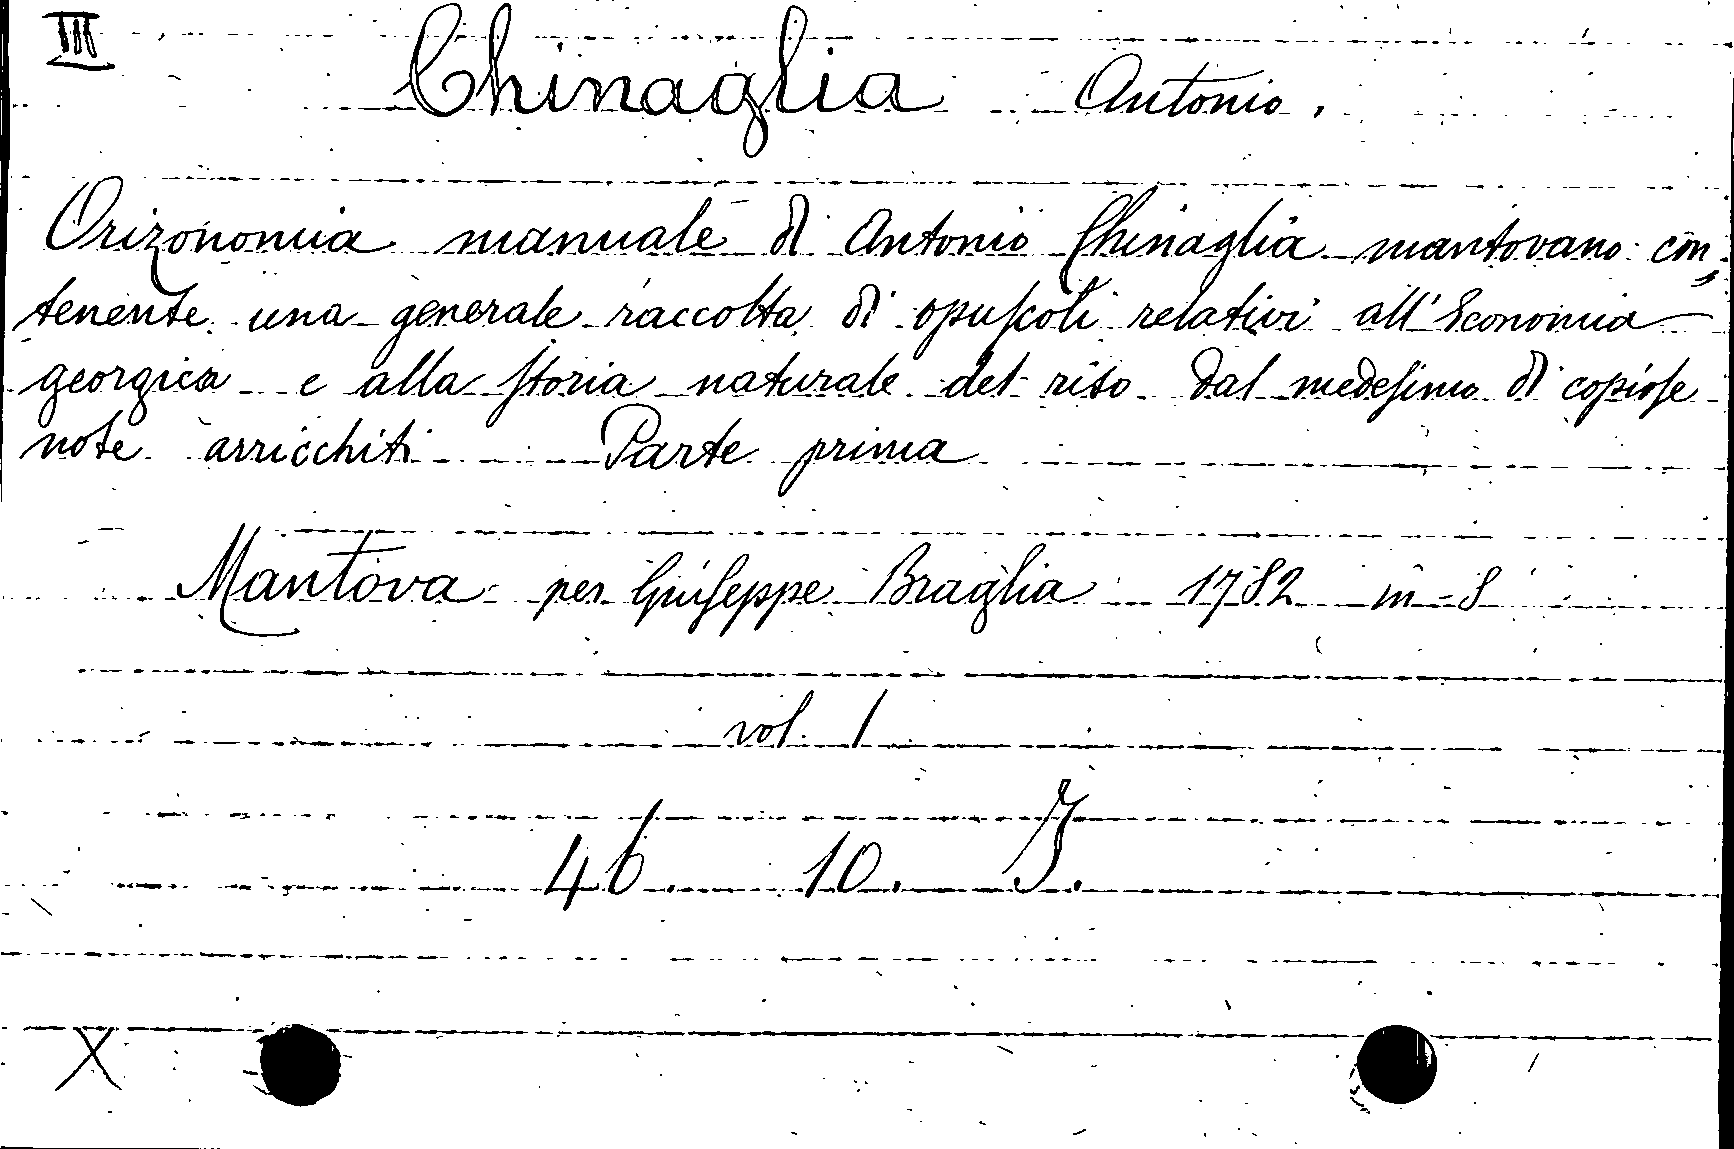 III
Chinaglia Antonio.
Orizonomia manuale di Antonio Chinaglia mantovano con,
tenente una generale raccolta di opuſcoli relativi all'Economia
georgica e alla ſtoria naturale del riso dal medeſimo di copioſe
note arricchiti Parte prima
Mantova per Giuſeppe Braglia 1782 in-8
vol. 1
46. 10. J.
X